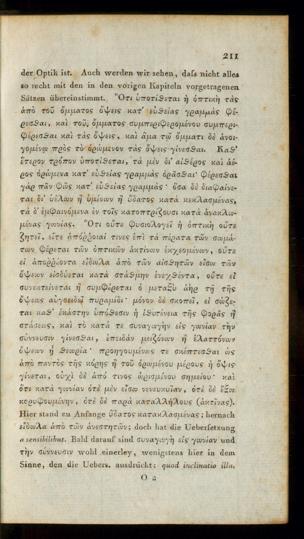 211
der Optik ist. Auch werden wir sehen, daſs nicht alles
so recht mit den in den vorigen Kapiteln vorgetragenen
Sätzen übereinstimmt. Ὅτι ὑποτίθεται ἡ ὀπτικὴ τὰς
ἀπὸ τοῦ ὄμματος ὄψεις κατ' εὐθείας γραμμὰς φέ-
ρεσθαι, καὶ τοῦ, ὄμματος συμπεριφερομένου συμπερι-
φέρεσθαι καὶ τὰς ὄψεις, καὶ ἅμα τῷ ὄμματι δὲ ἀνοι-
γομένῳ πρὸς τὸ ὁρώμενον τὰς ὄψεις γίνεσθαι. Καθ'
ἕτερον τρόπον ὑποτίθεται, τὰ μὲν δι' αἰθέρος καὶ ἀέ-
ρος ὁρώμενα κατ' εὐθείας γραμμὰς ὁρᾶσθαι· φέρεσθαι
γὰρ πᾶν φῶς κατ' εὐθείας γραμμάς· ὅσα δὲ διαφαίνε-
ται δι' ὑέλων ἢ ὑμένων ἢ ὕδατος κατὰ κεκλασμένας,
τὰ δ' ἐμφαινόμενα ἐν τοῖς κατοπτρίζουσι κατὰ ἀνακλω-
μένας γωνίας. Ὅτι οὔτε φυσιολογεῖ ἡ ὀπτικὴ οὔτε
ζητεῖ, εἴτε ἀπόῤῥοιαί τινες ἐπὶ τὰ πέρατα τῶν σωμά-
των φέρεται τῶν ὀπτικῶν ἀκτίνων ἐκχεομένων, οὔτε
εἰ ἀποῤῥέοντα εἴδωλα ἀπὸ τῶν αἰσθητῶν εἴσω τῶν
ὄψεων εἰσδύεται κατὰ στάθμην ἐνεχθέντα, οὔτε εἰ
συνεκτείνεται ἢ συμφέρεται ὁ μεταξὺ ἀὴρ τῇ τῆς
ὄψεως αὐγοειδῶ πυραμίδι· μόνον δὲ σκοπεῖ, εἰ σώζε-
ται καθ' ἑκάστην ὑπόθεσιν ἡ ἰθυτένεια τῆς φορᾶς ἢ
στάσεως, καὶ τὸ κατά τε συναγωγὴν εἰς γωνίαν τὴν
σύννευσιν γίνεσθαι, ἐπειδὰν μειζόνων ἢ ἐλαττόνων
ὄψεων ἢ θεωρία· προηγουμένως τε σκέπτεσθαι ὡς
ἀπὸ παντὸς τῆς κόρης ἢ τοῦ ὁρωμένου μέρους ἡ ὄψις
γίνεται, οὐχὶ δὲ ἀπό τινος ὡρισμένου σημείου· καὶ
ὅτι κατὰ γωνίαν ὁτὲ μὲν εἴσω νενευκυῖαν, ὁτὲ δὲ ἔξω
κορυφουμένην, ὁτὲ δὲ παρὰ καταλλήλους (ἀκτῖνας).
Hier stand zu Anfange ὕδατος κατακλασμένας; hernach
εἴδωλα ἀπὸ τῶν ἀνεστητῶν; doch hat die Uebersetzung
a sensibilibus. Bald darauf sind συναγωγὴ εἰς γωνίαν und
τὴν σύννευσιν wohl einerley, wenigstens hier in dem
Sinne, den die Uebers. ausdrückt: quod inclinatio illa,
O 2